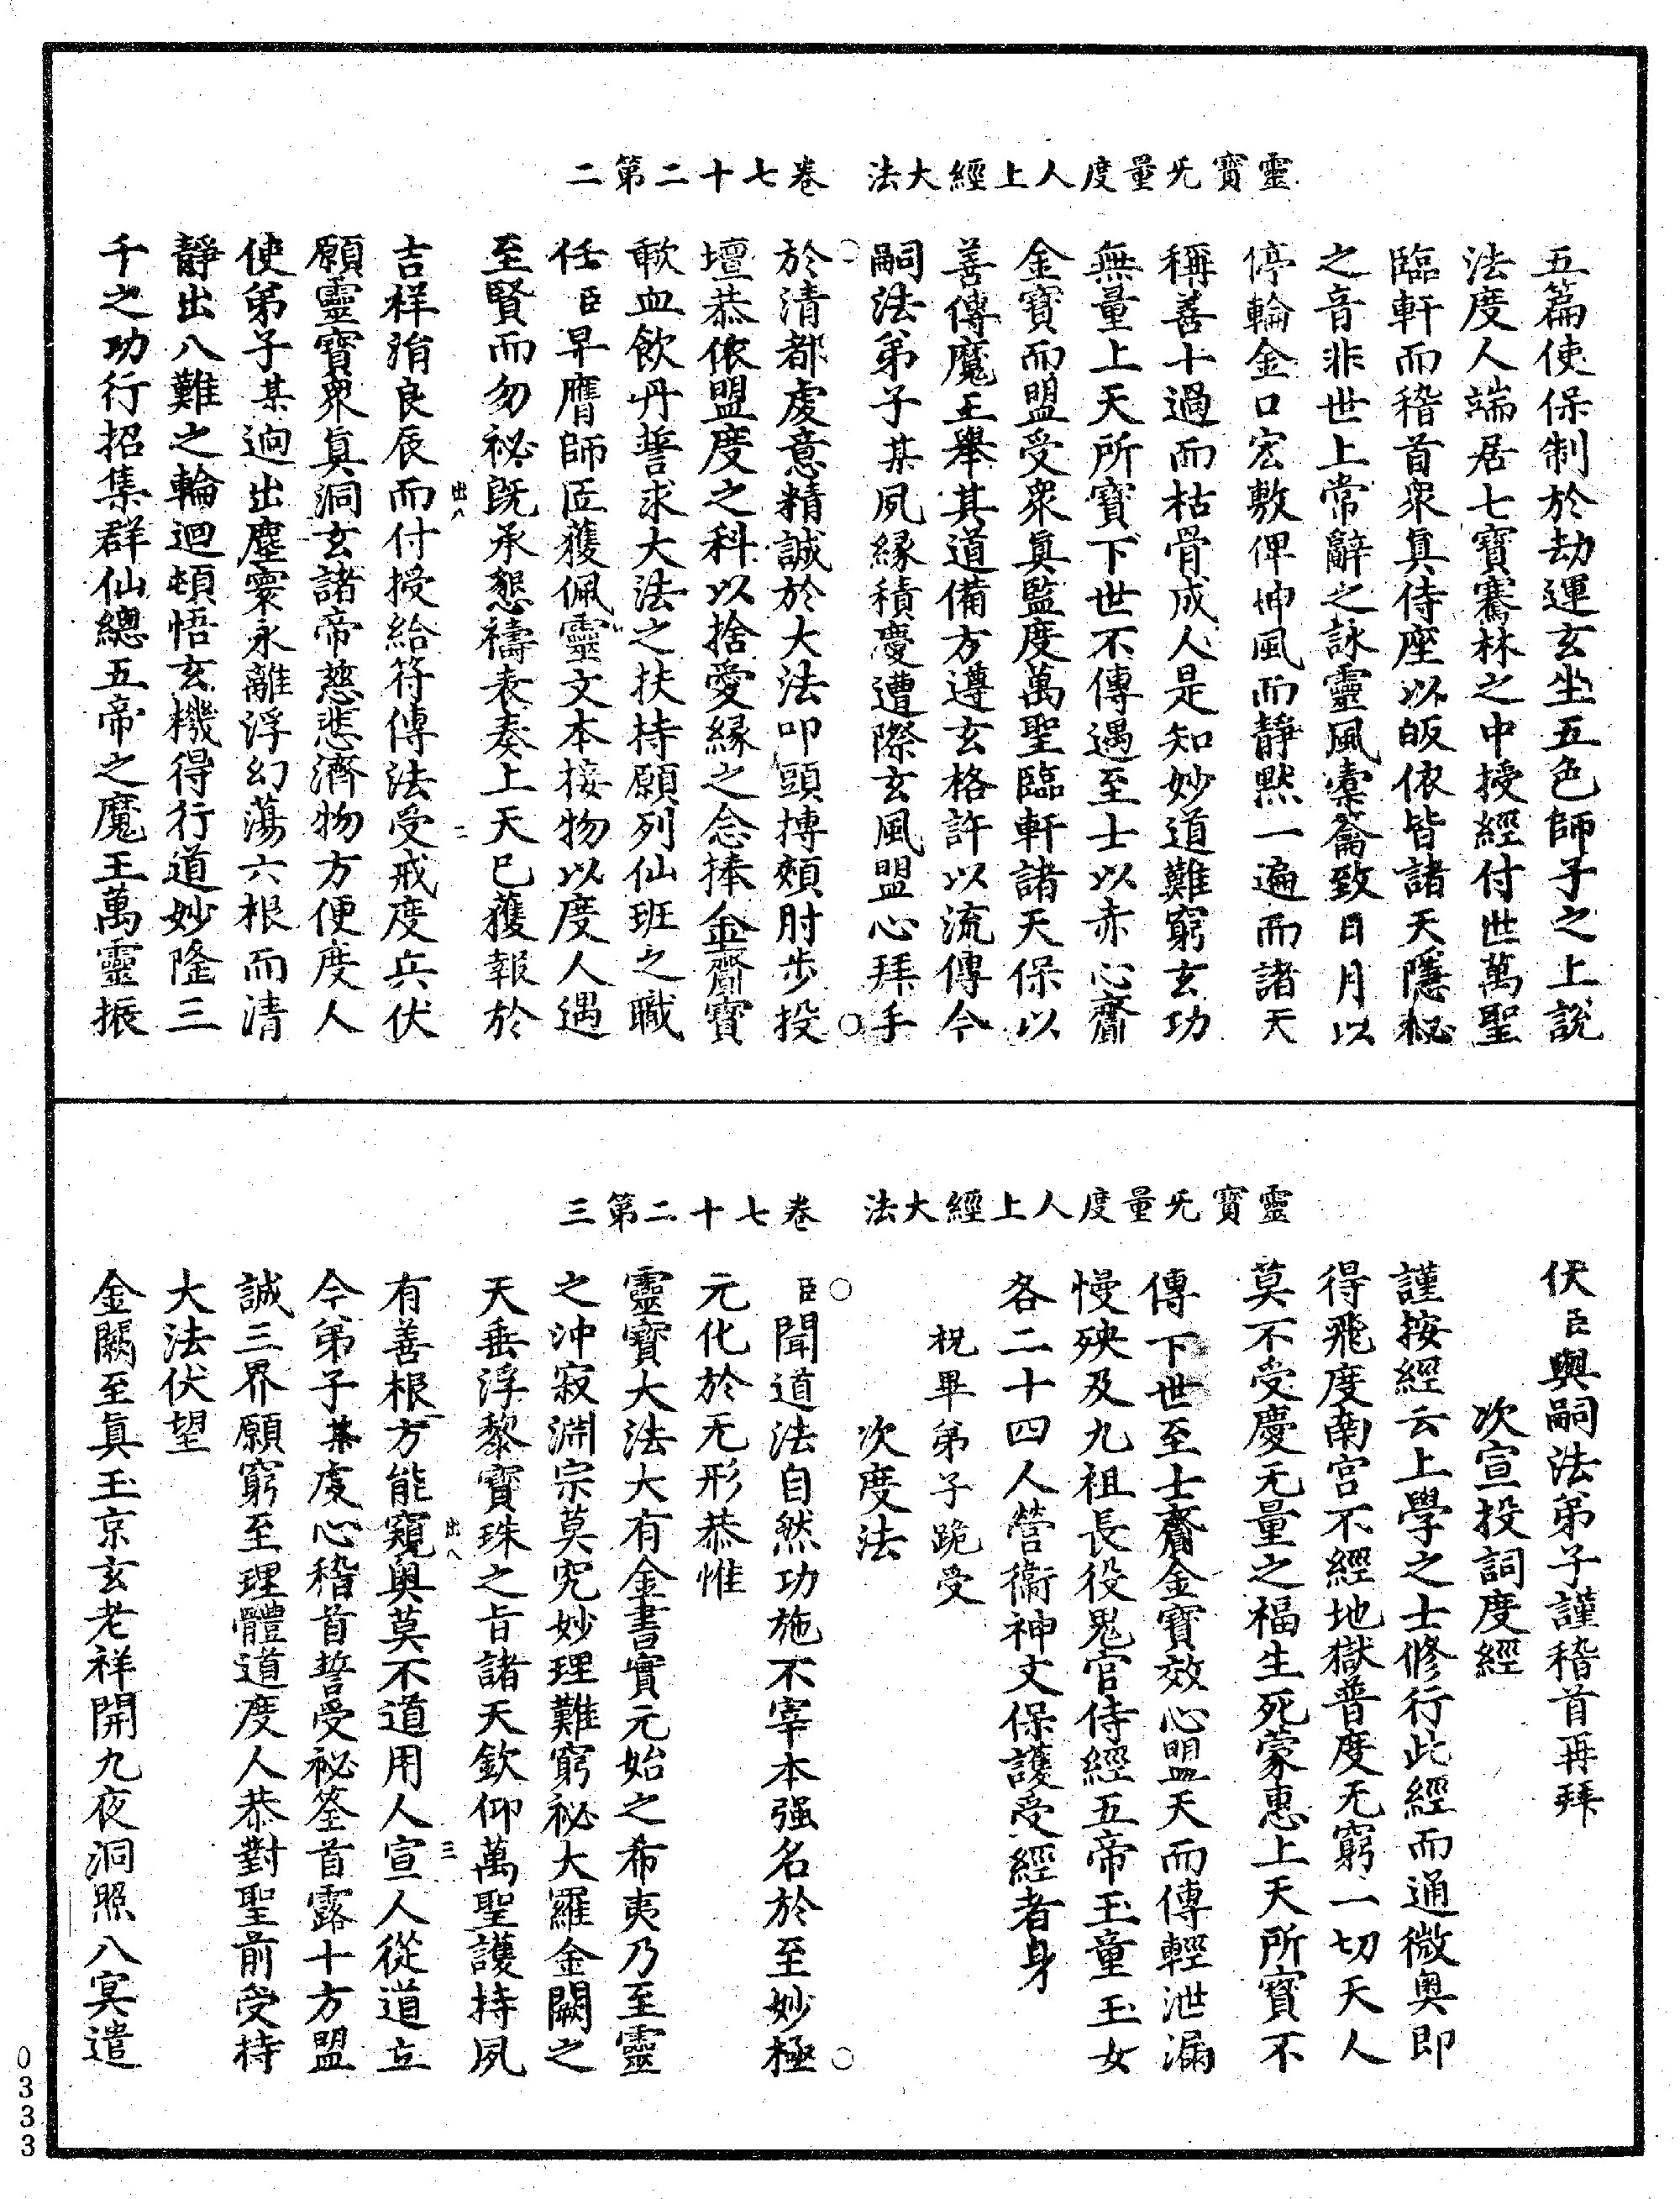 靈寶旡量度人上經大法　卷七十二第二
五篇使保制於劫運玄坐五色師子之上說
法度人端居七寶騫林之中授經付世萬聖
臨軒而稽首衆真侍座以皈依皆諸天隱祕
之音非世上常辭之詠靈風橐籥致日月以
停輪金口宏敷俾坤風而靜默一遍而諸天
稱善十過而枯骨成人是知妙道難窮玄功
無量上天所寶下世不傳遇至士以赤心齎
金寶而盟受衆真監度萬聖臨軒諸天保以
善傳魔王舉其道備方遵玄格許以流傳今
嗣法弟子某夙緣積慶遭際玄風盟心拜手
於清都虔意精誠於大法叩頭搏頰肘步投
壇恭依盟度之科以捨愛緣之念捧金齎寶
歃血飲丹誓求大法之扶持願列仙班之職
任臣早膺師匠獲佩靈文本接物以度人遇
至賢而勿祕旣承懇禱表奏上天已獲報於
吉祥涓良辰而付授給符傳法受戒度兵伏
願靈寶衆真洞玄諸帝慈悲濟物方便度人
使弟子某逈出塵寰永離浮幻蕩六根而清
靜出八難之輪迴頓悟玄機得行道妙隆三
千之功行招集群仙總五帝之魔王萬靈振
出八
二
靈寶旡量度人上經大法　卷七十二第三
伏臣與嗣法弟子謹稽首再拜
次宣投詞度經
謹按經云上學之士修行此經而通微奥即
得飛度南宫不經地獄普度旡窮一切天人
莫不受慶旡量之福生死蒙惠上天所寶不
傳下世至士齎金寶效心盟天而傳輕泄漏
慢殃及九祖長役鬼官侍經五帝玉童玉女
各二十四人營衞神文保護受經者身
祝畢弟子跪受
次度法
臣聞道法自然功施不宰本强名於至妙極
元化於旡形恭惟
靈寶大法大有金書實元始之希夷乃至靈
之沖寂淵宗莫究妙理難窮祕大羅金闕之
天垂浮黎寶珠之旨諸天欽仰萬聖護持夙
有善根方能窺奥莫不道用人宣人從道立
今弟子某虔心稽首誓受祕筌首露十方盟
誠三界願窮至理體道度人恭對聖前受持
大法伏望
金闕至真玉京玄老祥開九夜洞照八冥遣
出八
三
0333